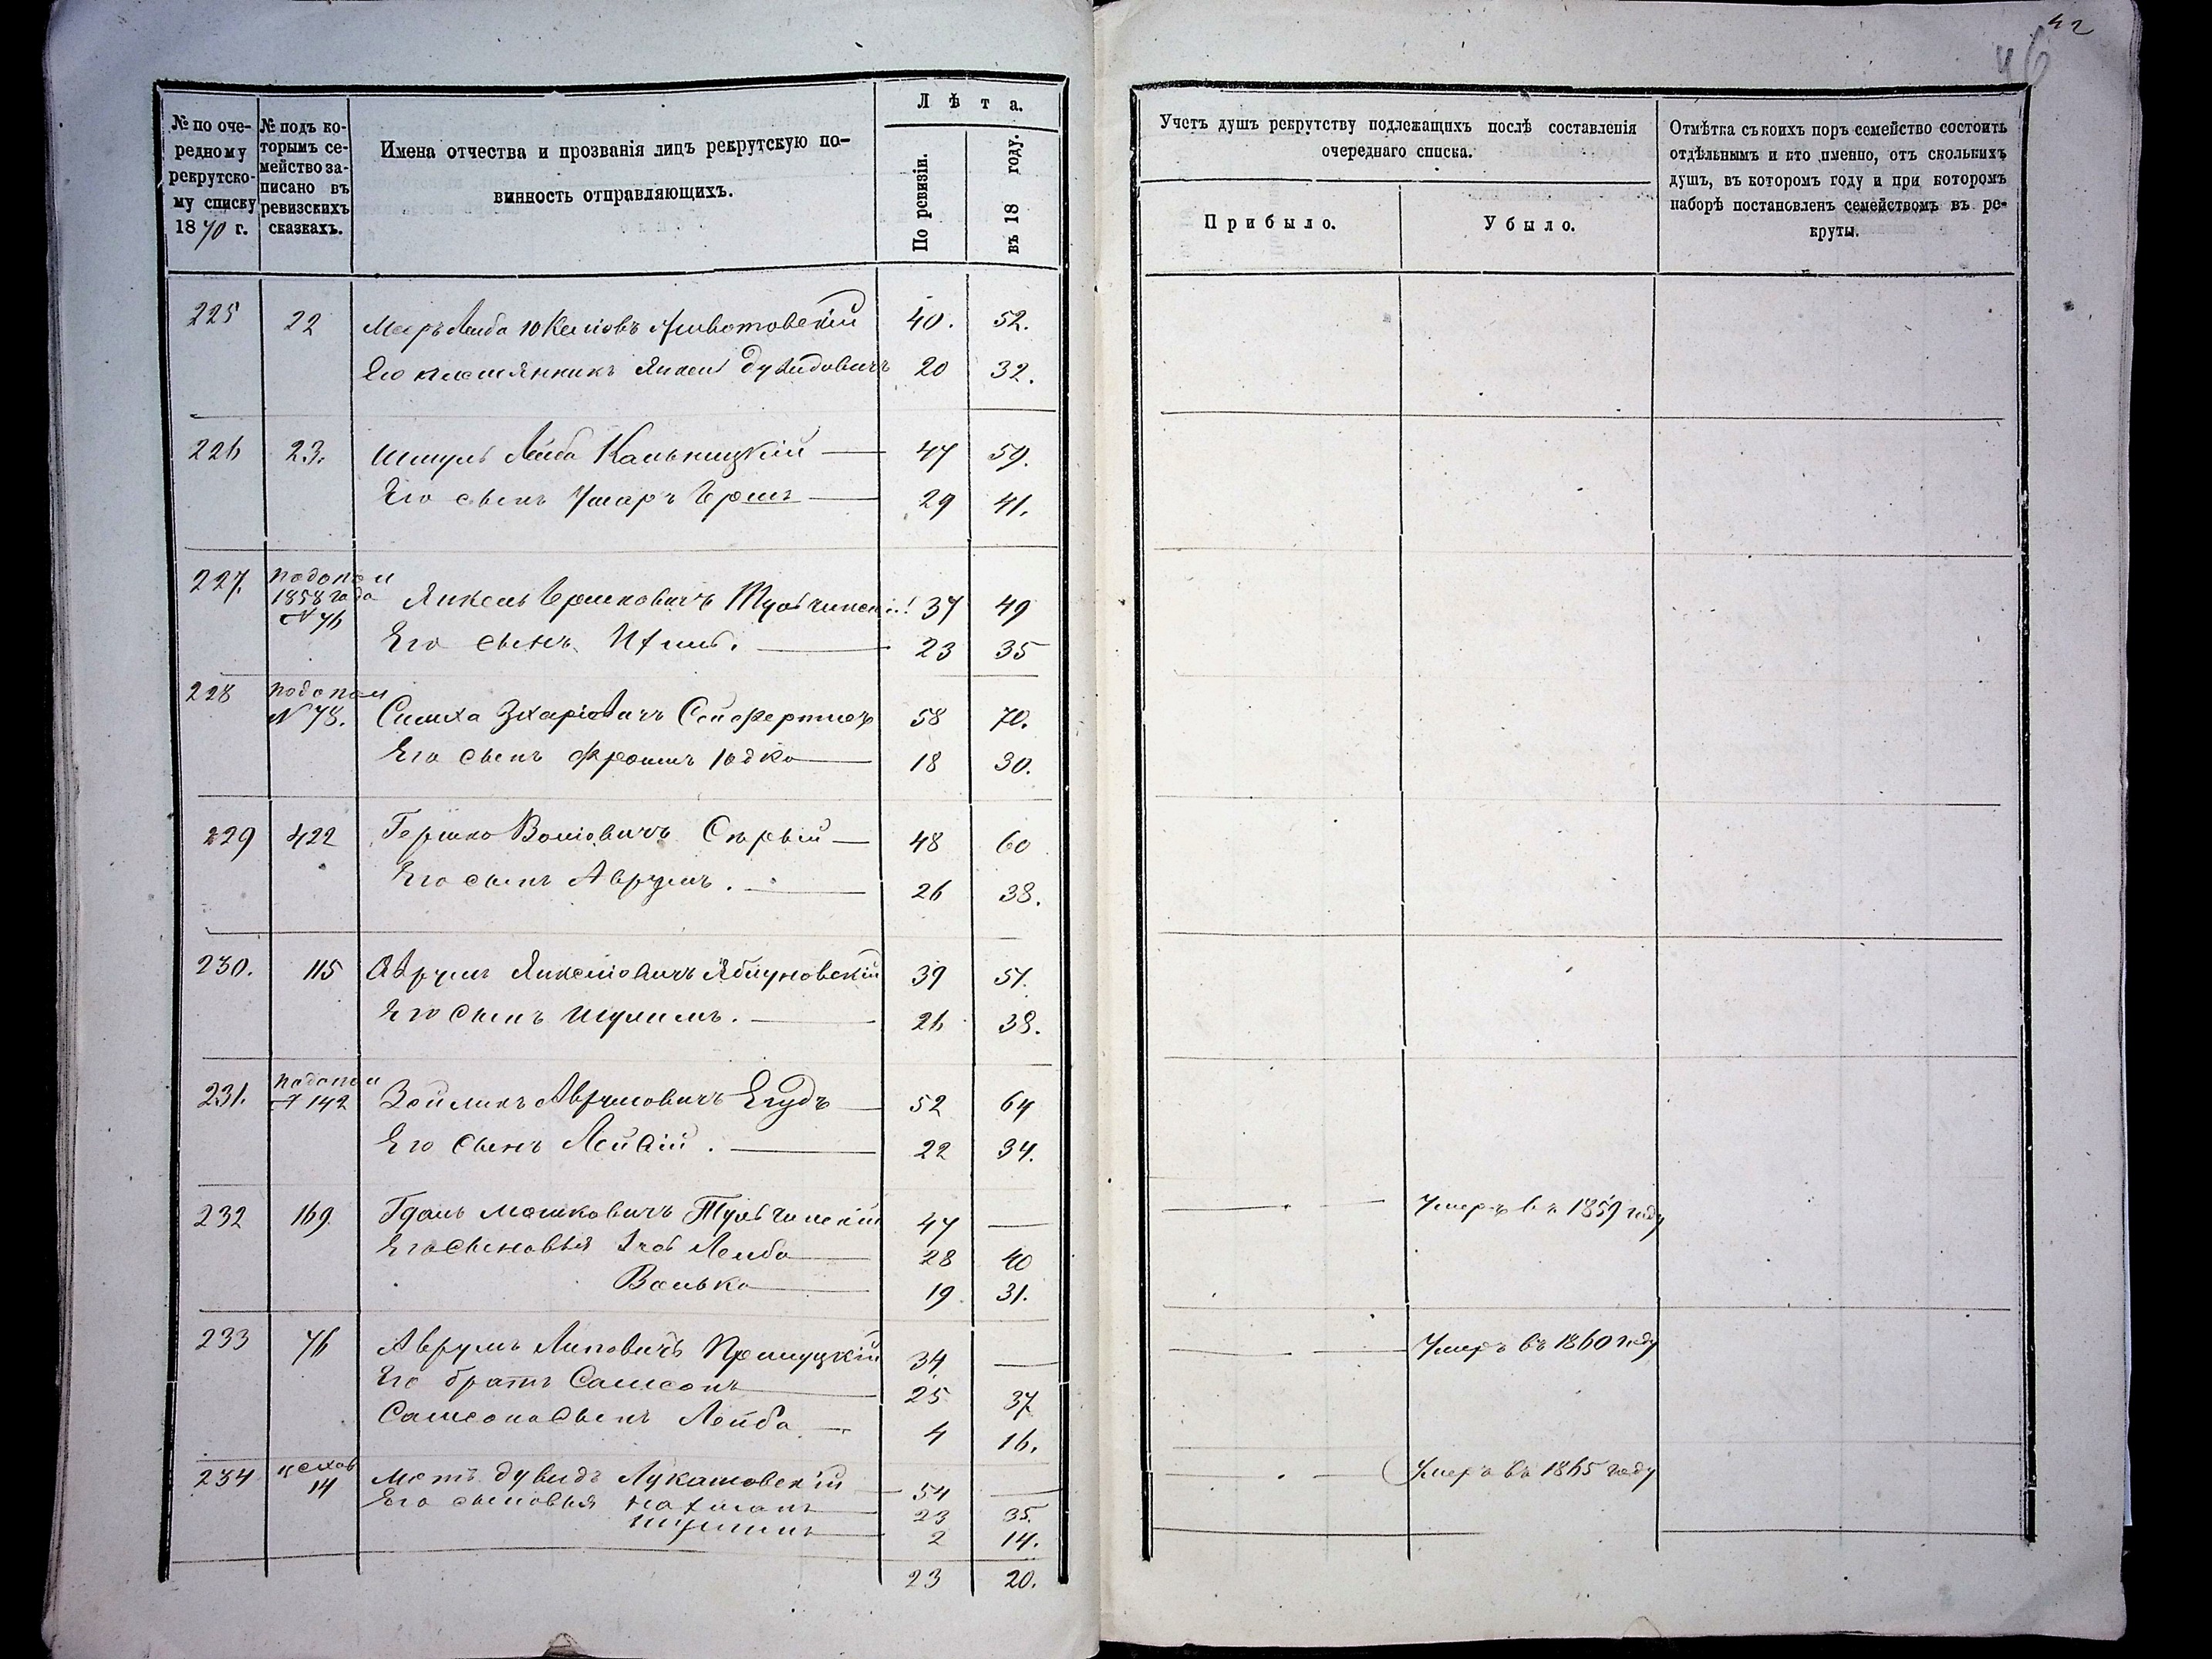 42
46
№ по оче-
редному
рекрутско-
му списку
1870 г.
№ подъ ко-
торымъ се-
мейство за-
писано въ
ревизскихъ
сказкахъ.
Имена отчества и прозванія лицъ рекрутскую по-
винность отправляющихъ.
Лѣта.
По ревизіи.
въ 18 году.
Учетъ душъ рекрутству подлежащихъ послѣ составленія
очереднаго списка.
Прибыло.
Убыло.
Отмѣтка съ коихъ поръ семейство состоитъ
отдѣльнымъ и кто именно, отъ сколькихъ
душъ, въ котором году и при которомъ
наборѣ постановленъ семействомъ въ ре-
круты.
225 22 Меръ Лейба Животовскій 40. 52.
Его племянникъ Янкель Дувидовичъ 20 32.
226 23. Шмуль Лейба Кальницкій 47 59.
Его сынъ Умаръ Герш 29 41.
227. подопол
1858 года
№ 76 Янкель Гершковичъ Тульчинскій 37 49
Его сынъ 23 35
228 подопол
№ 78. Симха 58 70.
Его сынъ Фроимъ Юдко 18 30.
229 422 Гершко Волковичъ Сѣрый 48 60
Его сынъ Аврумъ. 26 38.
230. 115 Аврумъ Янкеліовичъ Яблуновскій 39 51.
Его сынъ Шулимъ. 26 38.
231. подопол
№ 142 Зейликъ Аврумовичъ 52 64
Его сынъ Лейвій. 22 34.
232 169 Гдаль Мошковичъ Тульчинскій 47 — Умеръ въ 1859 году
Его сыновья Лейба 28 40
Волько 19 31.
233 76 Аврумъ Липовичъ Прилуцкій 34 — Умеръ въ 1860 году
Его братъ Самсонъ 25 37
Самсона сынъ Лейба 4 16.
234 цехов
14 Мотъ Дувидъ Лукашовскій 54 — Умеръ въ 1865 году
Его сыновья Нахманъ 23 35.
Шулимъ 2 14.
23 20.